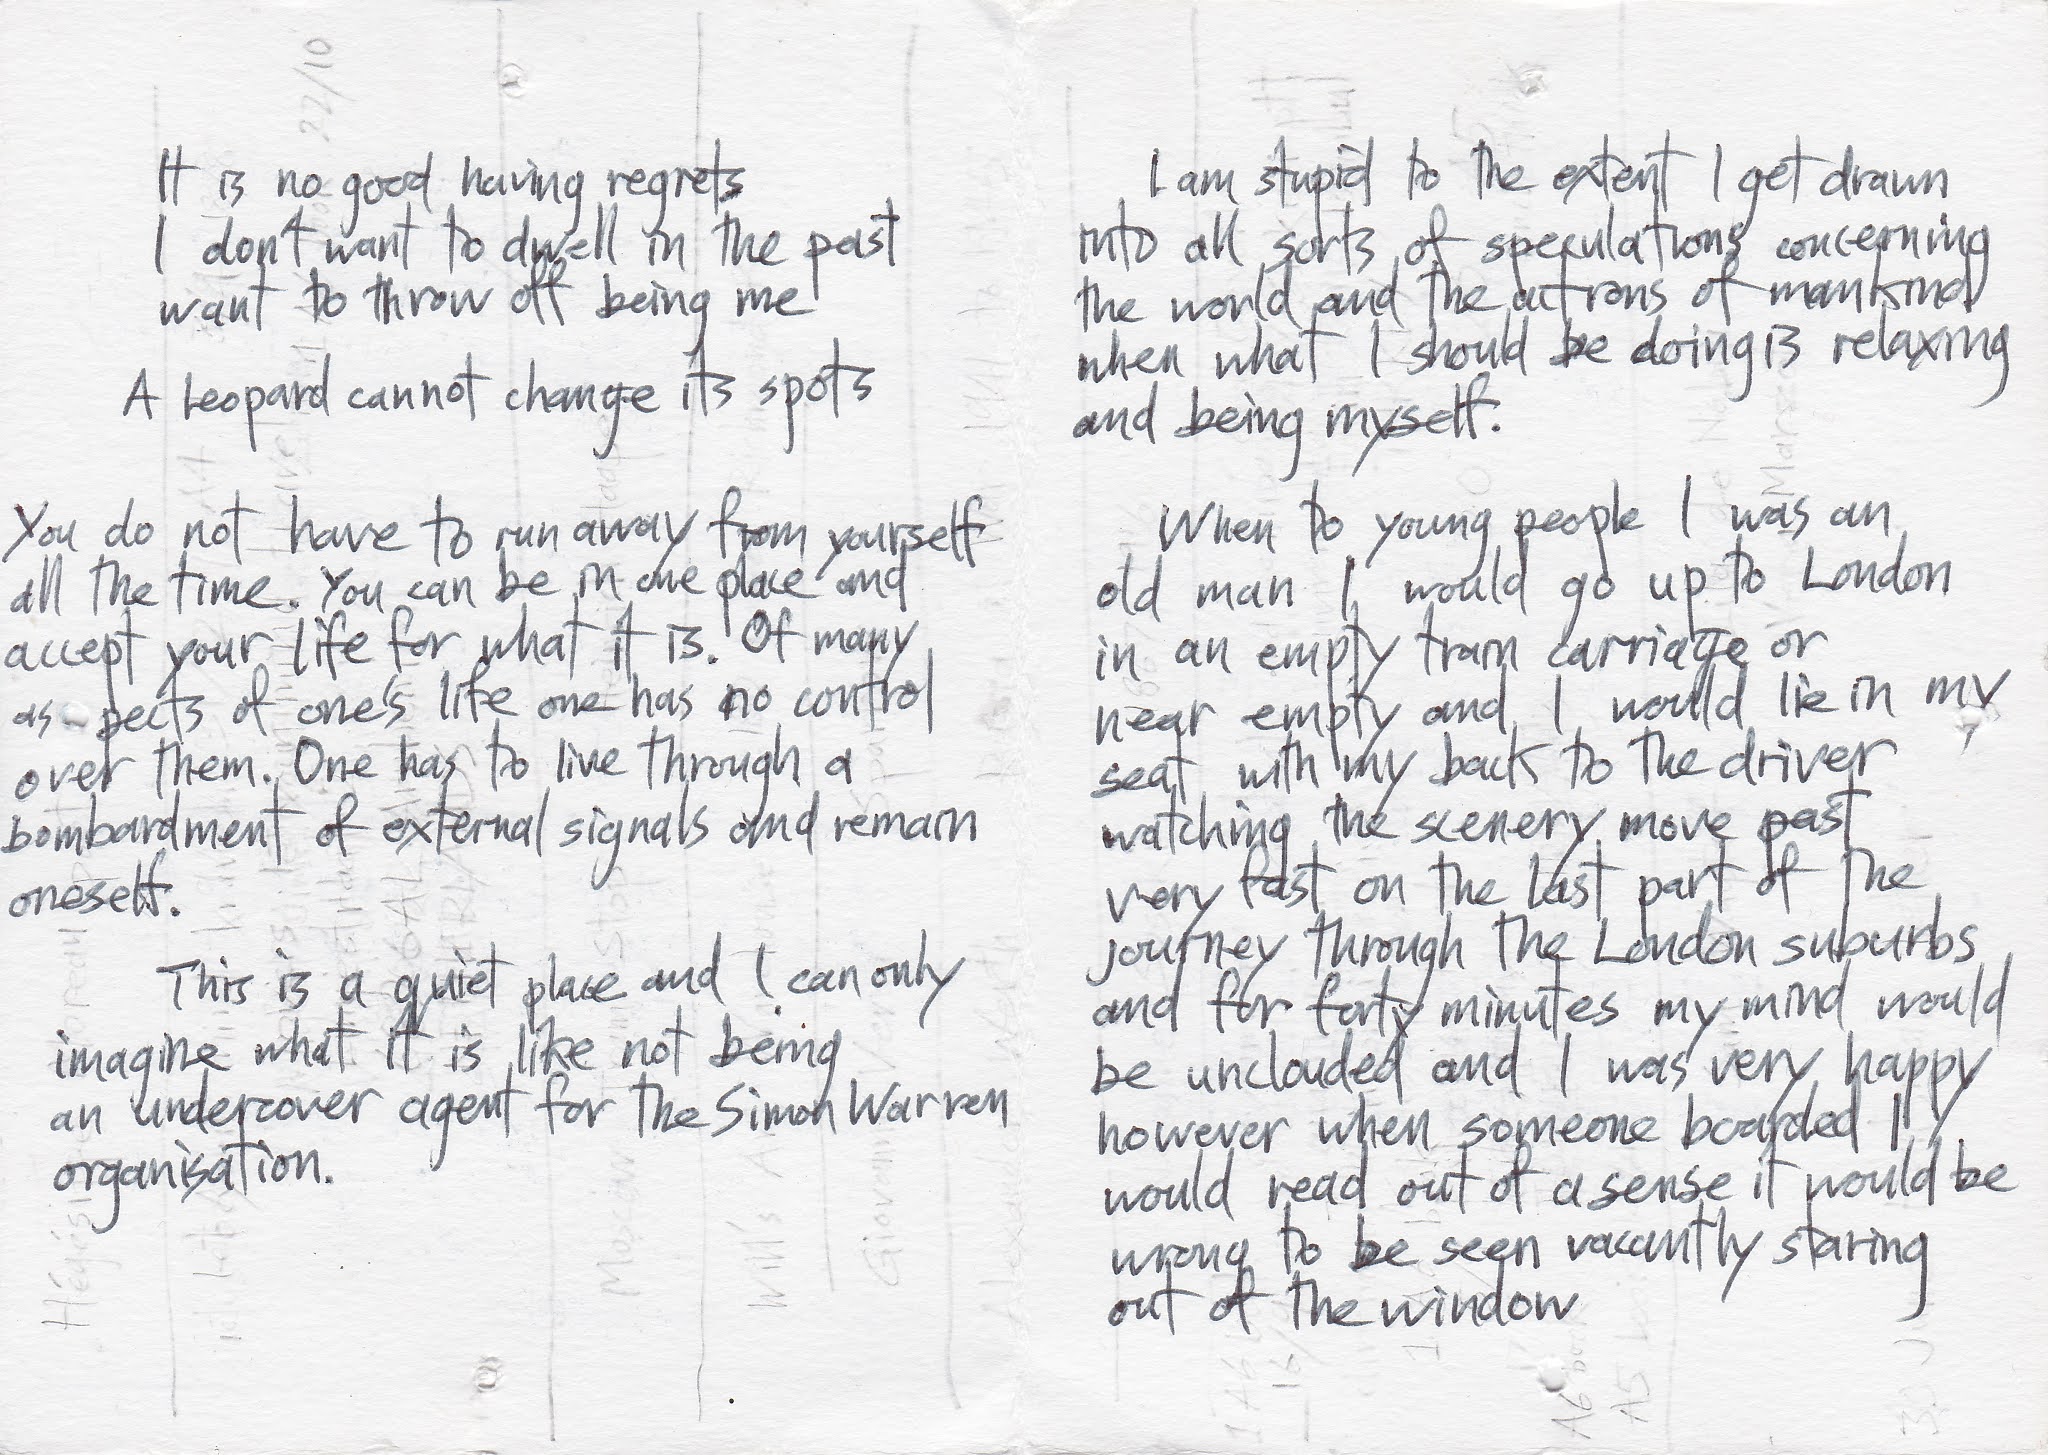 It is no good having regrets
I don't want to dwell in the past
want to throw off being me
A Leopard cannot change its spots
You do not have to run away from yourself
all the time. You can be in one place and
accept your life for what it is. Of many
as pects of one's life one has no control
over them. One has to live through a
bombardment of external signals and remain
oneself.
This is a quiet place and I can only
imagine what it is like not being
an undercover agent for the Simon Warren
organisation.
I am stupid to the extent I get drawn
into all sorts of speculations concerning
the world and the actions of mankind
when what I should be doing is relaxing
and being myself.
When to young people I was an
old man I would go up to London
in an empty train carriage or
near empty and I would lie in my
seat with my back to the driver
watching the scenery move past
very fast on the last part of the
journey through the London suburbs
and for forty minutes my mind would
be unclouded and I was very happy
however when someone boarded I
would read out of a sense it would be
wrong to be seen vacantly staring
out of the window
22/10